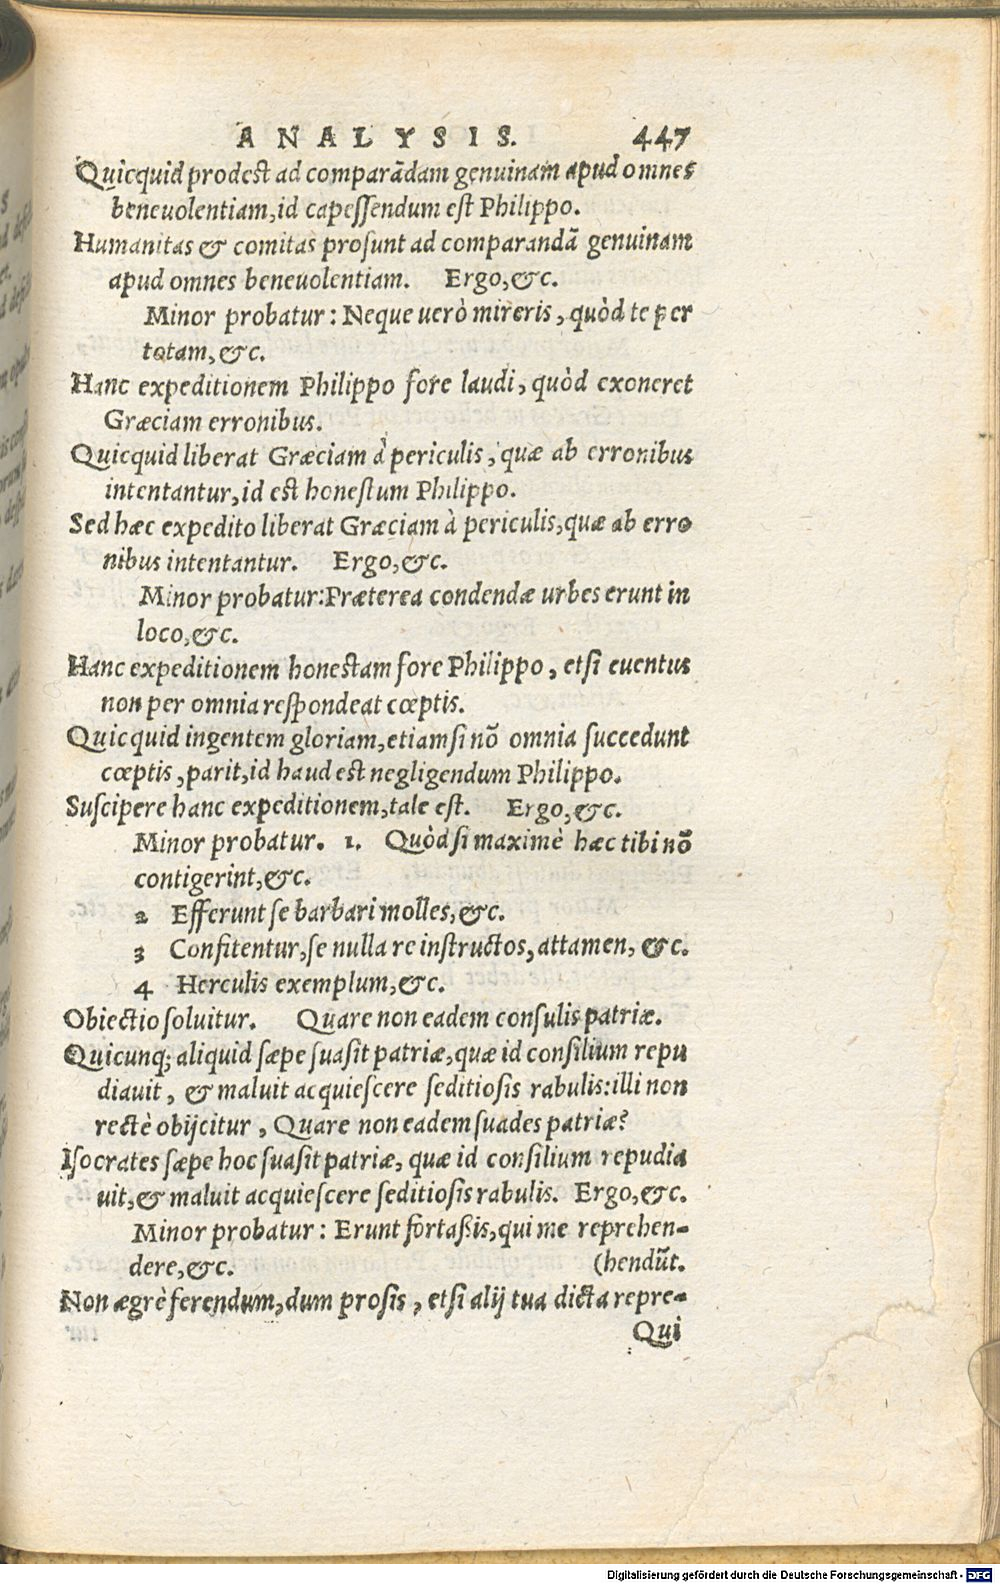 ANALYSIS. 447
Quicquid prodest ad comparãdam genuinam apud omnes
beneuolentiam, id capessendum est Philippo.
Humanitas & comitas prosunt ad comparandã genuinam
apud omnes beneuolentiam. Ergo, &c.
Minor probatur: Neque uerò mireris, quòd te per
totam, &c.
Hanc expeditionem Philippo fore laudi, quòd exoneret
Græciam erronibus.
Quicquid liberat Græciam à periculis, quæ ab erronibus
intentantur, id est honestum Philippo.
Sed hæc expedito liberat Græciam à periculis, quæ ab erro
nibus intentantur. Ergo, &c.
Minor probatur: Præterea condendæ urbes erunt in
loco, &c.
Hanc expeditionem honestam fore Philippo, etsi euentus
non per omnia respondeat cœptis.
Quicquid ingentem gloriam, etiamsi nõ omnia succedunt
cœptis, parit, id haud est negligendum Philippo.
Suscipere hanc expeditionem, tale est. Ergo, &c.
Minor probatur. 1. Quòd si maximè hæc tibi nõ
contigerint, &c.
2 Efferunt se barbari molles, &c.
3 Confitentur, se nulla re instructos, attamen, &c.
4 Herculis exemplum, &c.
Obiectio soluitur. Quare non eadem consulis patriæ.
Quicunq; aliquid sæpe suasit patriæ, quæ id consilium repu
diauit, & maluit acquiescere seditiosis rabulis: illi non
rectè obijcitur, Quare non eadem suades patriæ?
Isocrates sæpe hoc suasit patriæ, quæ id consilium repudia
uit, & maluit acquiescere seditiosis rabulis. Ergo, &c.
Minor probatur: Erunt fortaßis, qui me reprehen-
dere, &c. (hendũt.
Non ægrè ferendum, dum prosis, etsi alij tua dicta repre-
Qui
Digitalisierung gefördert durch die Deutsche Forschungsgemeinschaft - DFG